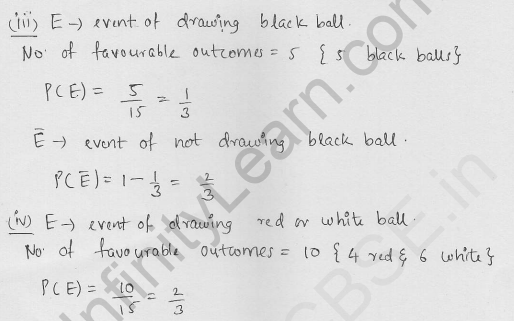 (iii) E → event of drawing black ball.
No. of favourable outcomes = 5 { 5 black balls}
P(E) = 5/15 = 1/3
Ē → event of not drawing black ball.
P(Ē) = 1 - 1/3 = 2/3
(iv) E → event of drawing red or white ball.
No. of favourable outcomes = 10 { 4 red & 6 white}
P(E) = 10/15 = 2/3
InfinityLearn.com
CBSE.in